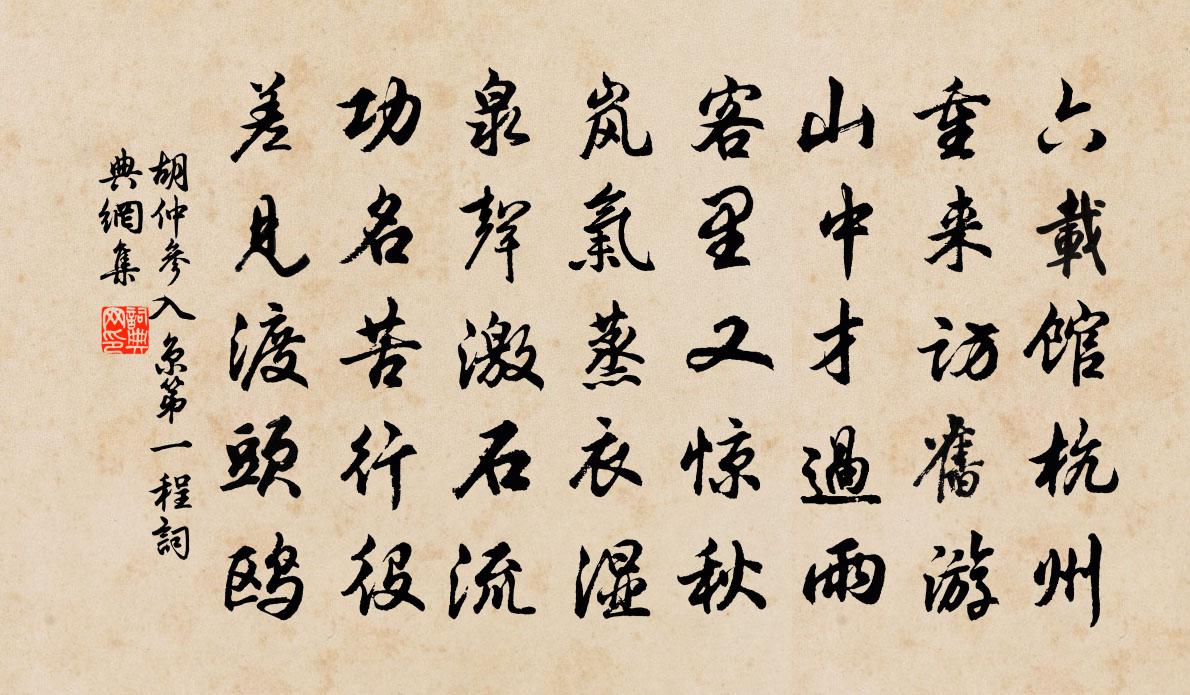 六載館杭州
重来訪舊游
山中才過雨
客里又惊秋
岚氣蒸衣湿
泉聲激石流
功名苦行役
差見渡頭鸥
胡仲參入京第一程詞
典網集
詞典
网印